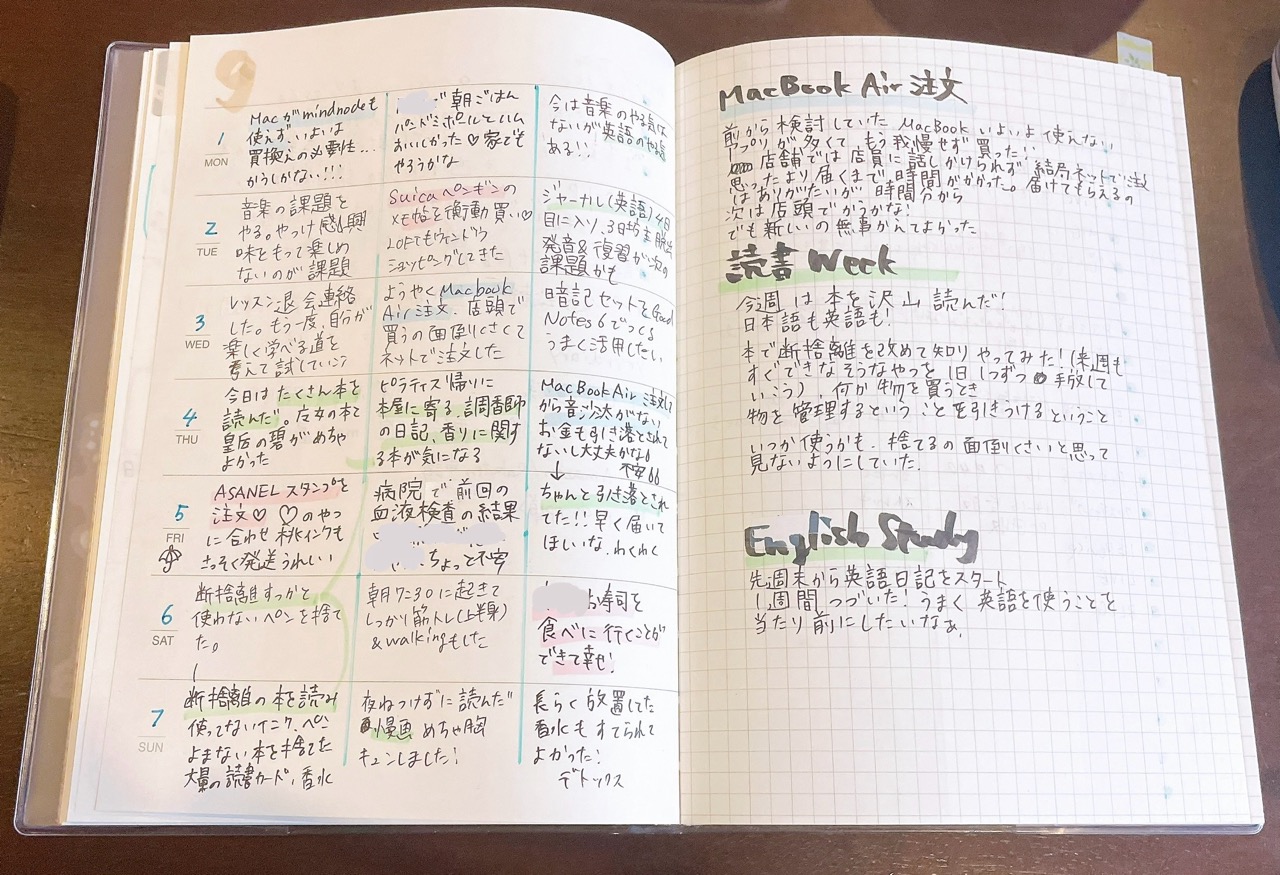 9
1
MON
Macがmindnodeも
使えず、いよいよ
買換えの必要性...
かうしかない!!!
で朝ごはん
パンドミポルとハム
おいしかった♡家でも
やろうかな
今は音楽のやる気は
ないが英語のやる気
ある!!
2
TUE
音楽の課題を
やる。やっつけ感興
味をもって楽しめ
ないのが課題
Suicaペンギンの
メモ帖を衝動買い♡
LOFTもウィンドウ
ショッピングしてきた
ジャーナル(英語)4日
目に入り、3日坊主脱出
発音&復習が次の
課題かも
3
WED
レッスン退会連絡
した。もう一度、自分が
楽しく学べる道を
考えて試していこう
ようやくMacbook
Air注文、店頭で
買うの面倒くさくて
ネットで注文した
暗記セットをGood
Notes6でつくる
うまく活用したい
4
THU
今日はたくさん本を
読んだ。
皇后の碧がめちゃ
よかった
ピラティス帰りに
本屋に寄る、調香師
の日記、香りに関す
る本が気になる
MacBookAir注文して
から音沙汰がない
お金も引き落とされて
ないし大丈夫かな。
↓ 不安
5
FRI
ASANELスタンプを
注文♡ ♡のやつ
に合わせ桃インクも
さっそく発送うれしい
病院で前回の
血液検査の結果
ちょっと不安
ちゃんと引き落とされ
てた!!早く届いて
ほしいな、わくわく
6
SAT
断捨離すっかと
使わないペンを捨て
た。
朝7:30に起きて
しっかり筋トレ(上半身)
&walkingもした
お寿司を
食べに行くことが
できて幸せ!
7
SUN
断捨離の本を読み
使ってないインク、ペン
よまない本を捨てた
大量の読書カード、香水
夜ねつけずに読んだ
漫画 めちゃ胸
キュンしました!
長らく放置してた
香水もすてられて
よかった!
デトックス
MacBook Air 注文
前から検討していたMacBookいよいよ使えない
アプリが多くて、もう我慢せず買った!
店舗では店員に話しかけられず結局ネットで注文
思ったより届くまで時間がかかった。届けてもらえるの
はありがたいが、時間分から
次は店頭でかうかな!
でも新しいの無事かえてよかった
読書 Week
今週は本を沢山読んだ!
日本語も英語も!
本で断捨離を改めて知りやってみた!(来週も
すぐできなそうなやつを1日1つずつ手放して
いこう)、何か物を買うとき
物を管理するということを引きうけるということ
いつか使うかも、捨てるの面倒くさいと思って
見ないようにしていた。
English Study
先週末から英語日記をスタート
1週間つづいた!うまく英語を使うことを
当たり前にしたいなぁ。